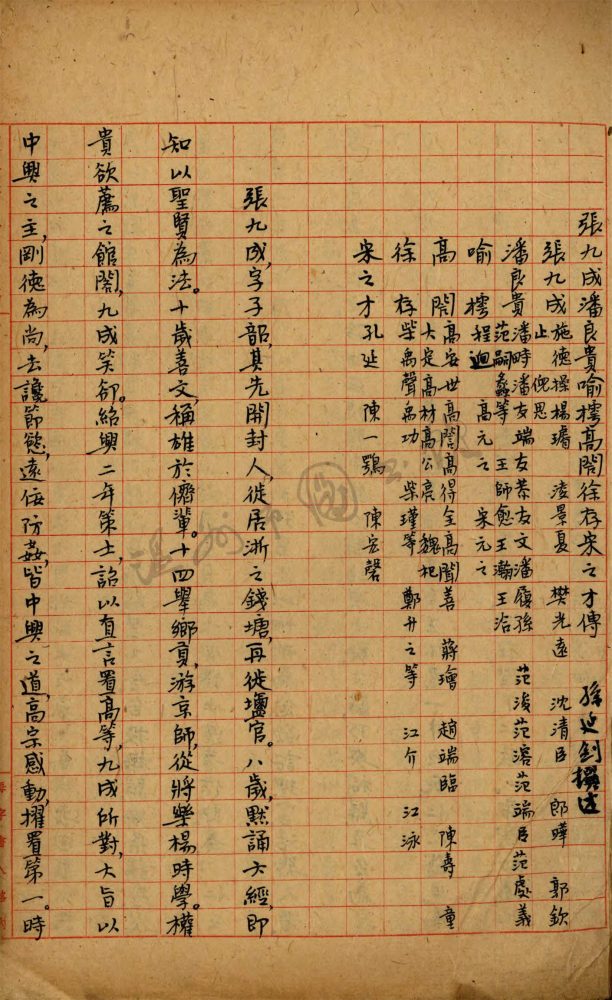 張九成潘良貴喻樗高閌徐存宋之才傳　孫延釗撰述
張九成　施德操　楊璿　凌景夏　樊光遠　沈清臣　郎曄　郭欽
止　倪思
潘良貴　潘畤　潘友端　友恭　友文　潘履孫　范浚　范溶　范端臣　范處義
范嗣蠡等　王師愈　王瀚　王洽
喻樗　程迥　高元之　宋元之
高閌　高安世　高誾　高得全　高聞善　蔣璯　趙端臨　陳壽　童
大定　高材　高公亮　魏杞
徐存　柴禹聲　禹功　柴瑾等　鄭升之等　江介　江泳
宋之才　孔延　陳一鶚　陳宏磬
張九成,字子韶,其先開封人,徙居浙之錢塘,再徙鹽官。八歲,默誦六經,即
知以聖賢為法。十歲善文,稱雄於儕輩。十四舉鄉貢,游京師,從將樂楊時學。權
貴欲薦之館閣,九成笑卻。紹興二年策士,詔以直言署高等,九成所對,大旨以
中興之主,剛德為尚,去讒節慾,遠佞防姦,皆中興之道,高宗感動,擢署第一。時